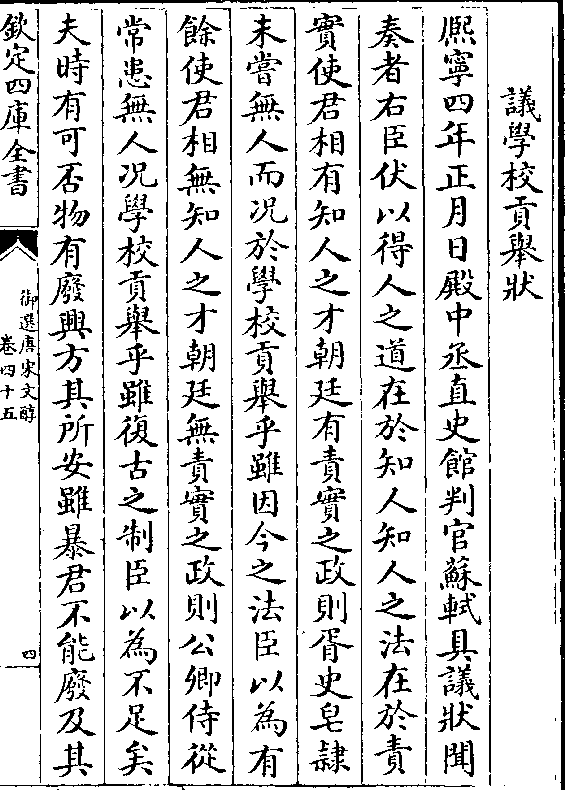 議學校貢舉狀
熈寧四年正月日殿中丞直史館判官蘇軾具議狀聞
奏者右臣伏以得人之道在於知人知人之法在於責
實使君相有知人之才朝廷有責實之政則胥史皂隷
未嘗無人而况於學校貢舉乎雖因今之法臣以為有
餘使君相無知人之才朝廷無責實之政則公卿侍從
常患無人况學校貢舉乎雖復古之制臣以為不足矣
夫時有可否物有廢興方其所安雖暴君不能廢及其
欽定四庫全書
御選唐宋文醇
卷四十五
四